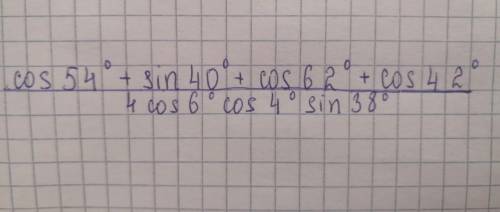 cos 54° + sin 40° + cos 62° + cos 42°
4 cos 6° cos 4° sin 38°